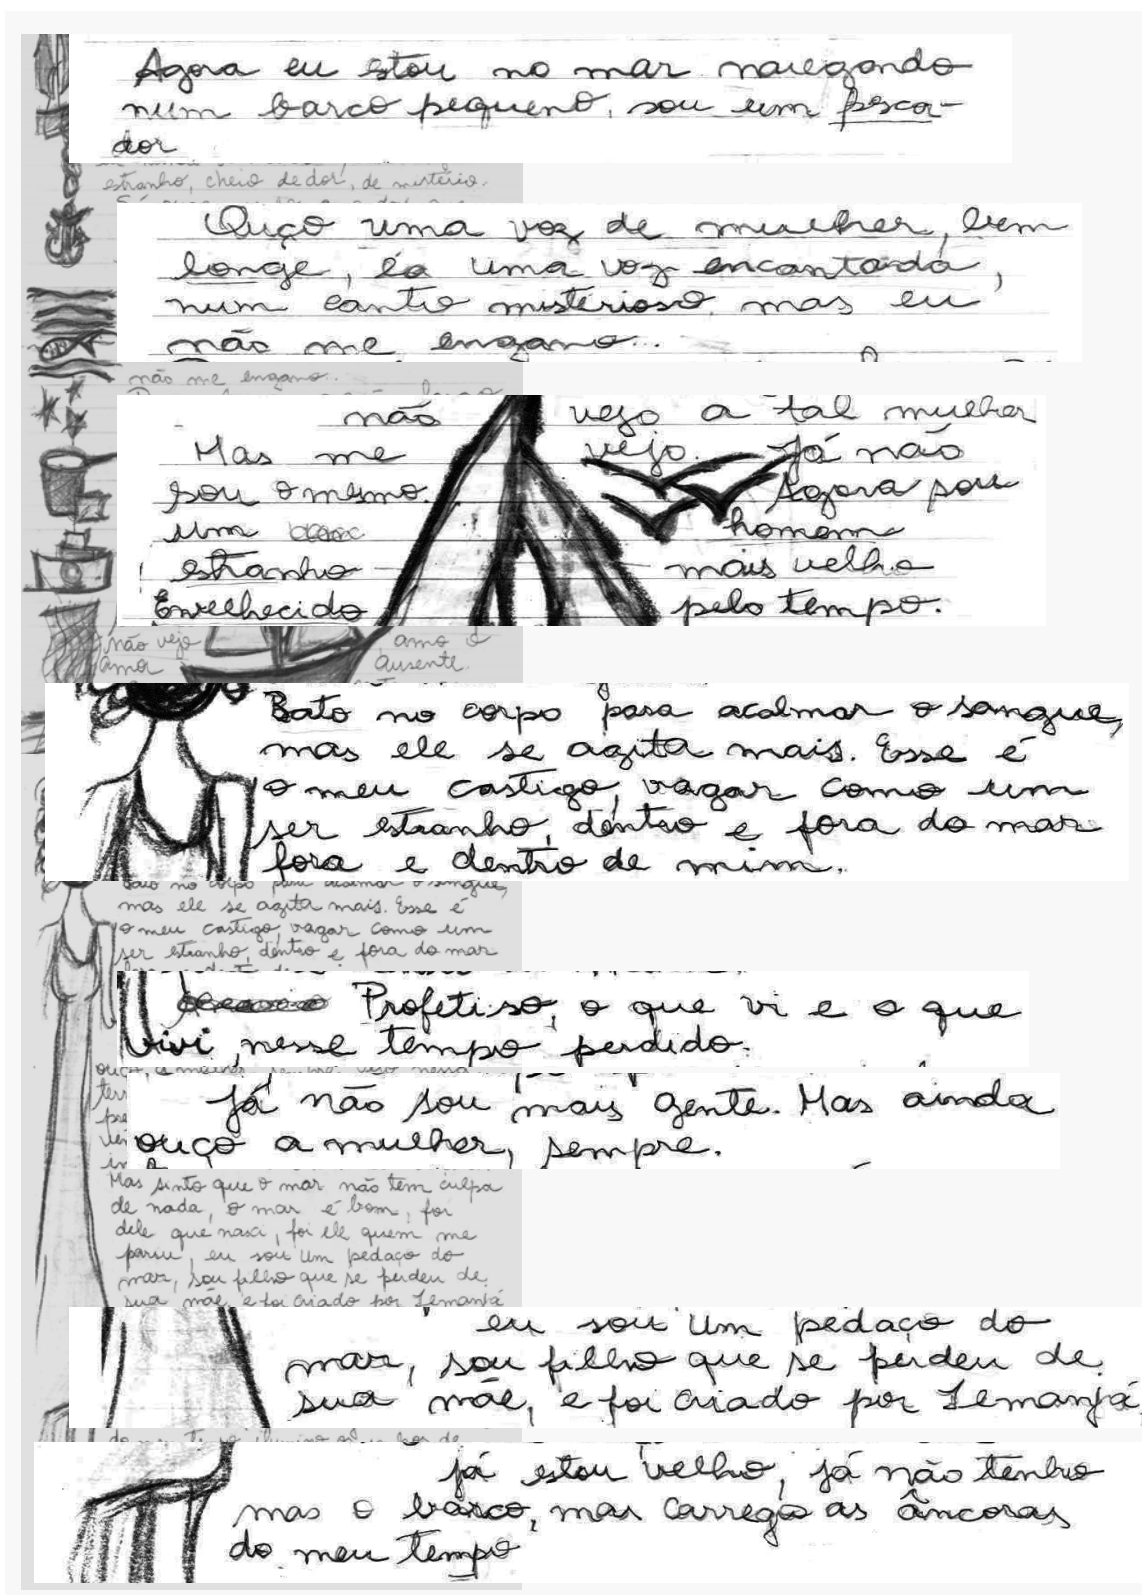 Agora eu estou no mar navegando
num barco pequeno, sou um pesca-
dor
estranho, cheio de dor, de mistério.
Ouço uma voz de mulher, bem
longe, éa uma voz encantada,
num canto misterioso, mas eu
não me engano...
não me engano..
não vejo a tal mulher
Mas me vejo. Já não
sou o mesmo. Agora sou
um homem
estranho mais velho
Envelhecido pelo tempo.
não vejo amo o
amor ausente.
Bato no corpo para acalmar o sangue,
mas ele se agita mais. Esse é
o meu castigo, vagar como um
ser estranho, dentro e fora do mar
fora e dentro de mim.
Bato no corpo para acalmar o sangue,
mas ele se agita mais. Esse é
o meu castigo, vagar como um
ser estranho, dentro e fora do mar
Profetiso, o que vi e o que
vivi, nesse tempo perdido.
Já não sou mais gente. Mas ainda
ouço a mulher, sempre.
Mas sinto que o mar não tem culpa
de nada, o mar é bom, foi
dele que nasci, foi ele quem me
pariu, eu sou um pedaço do
mar, sou filho que se perdeu de
sua mãe, e foi criado por Iemanjá
eu sou um pedaço do
mar, sou filho que se perdeu de
sua mãe, e foi criado por Iemanjá,
já estou velho, já não tenho
mas o barco, mas carrego as âncoras
do meu tempo